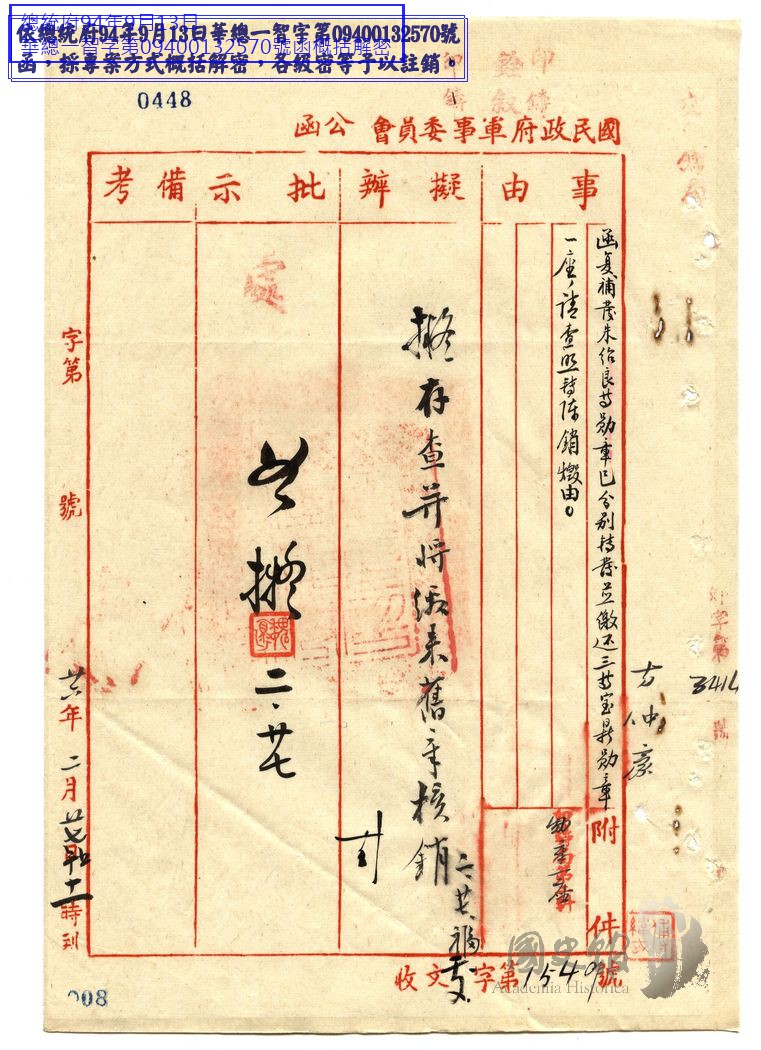 總統府94年9月13日
華總一智字第09400132570號函概括解密
依總統府94年9月13日華總一智字第09400132570號
函，採專案方式概括解密，各級密等予以註銷。
0448
國民政府軍事委員會 公函
事由
擬辦
批示
備考
函复補發朱紹良等勛章已分別轉發並繳還三等宝鼎勛章
一座請查照轉陳銷燬由。
附件
擬存查并將繳來舊章核銷
二、廿六
處
如擬
二、廿七
字第 號
廿六年二月廿七日 十一時到
3414
收文字第1549號
008
國史館
Academia Historica